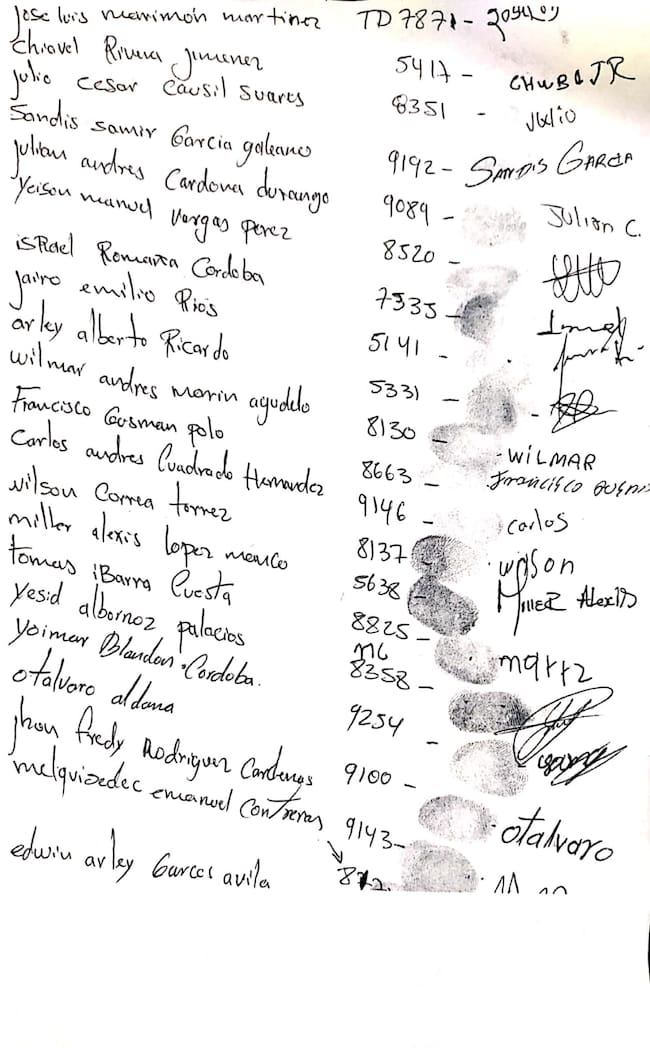 Jose luis marimon martinez TD 7871 -
chiovel Rivera Jimenez 5417 - CHUBQJR
Julio cesar causil suares 8351 - Julio
Sandis samir Garcia galeano 9192 - SANDIS GARCIA
Julian andres Cardona durango 9089 - Julian C.
Yeison manuel vargas perez 8520 -
isRael Romaña Cordoba 7535 -
Jairo emilio Rios 5141 -
arley alberto Ricardo 5331 -
wilmar andres morin agudelo 8130 - - WILMAR
Francisco Gusman polo 8663 - Francisco
Carlos andres Cuadrado Hernandez 9146 - carlos
wilson Correa torrez 8137 wilson
miller alexis lopez menco 5638 Miller Alexis
tomas iBarra Cuesta 8825 -
yesid albornoz palacios 8358 -
yoimar Blandon Cordoba. 9254 -
otalvaro aldana 9100 - otalvaro
jhon fredy Rodriguez Cardenas 9143 -
melquisedec emanuel contreras
edwin arley Garces avila